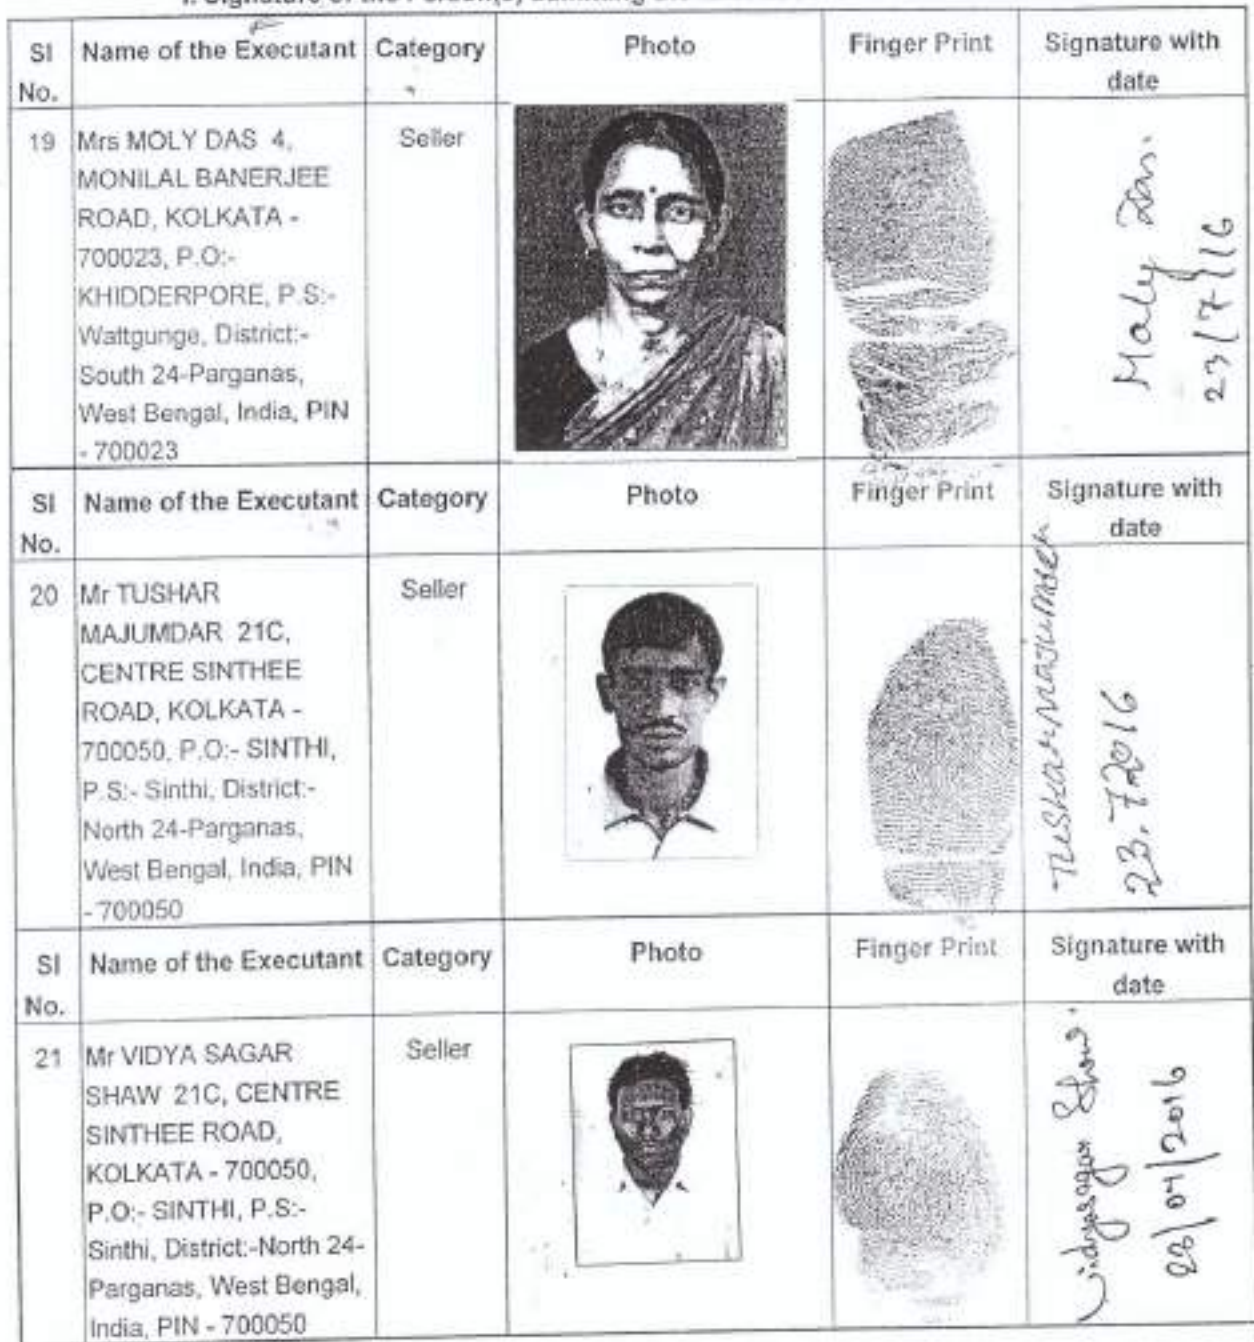 I. Signature of the Person(s)
SI No. Name of the Executant Category Photo Finger Print Signature with date
19 Mrs MOLY DAS 4, Seller
MONILAL BANERJEE
ROAD, KOLKATA -
700023, P.O:-
KHIDDERPORE, P.S:-
Wattgunge, District:-
South 24-Parganas,
West Bengal, India, PIN
- 700023
Moly Das.
23/7/16
SI No. Name of the Executant Category Photo Finger Print Signature with date
20 Mr TUSHAR Seller
MAJUMDAR 21C,
CENTRE SINTHEE
ROAD, KOLKATA -
700050, P.O:- SINTHI,
P.S:- Sinthi, District:-
North 24-Parganas,
West Bengal, India, PIN
- 700050
Tushar Majumder
23.72016
SI No. Name of the Executant Category Photo Finger Print Signature with date
21 Mr VIDYA SAGAR Seller
SHAW 21C, CENTRE
SINTHEE ROAD,
KOLKATA - 700050,
P.O:- SINTHI, P.S:-
Sinthi, District:-North 24-
Parganas, West Bengal,
India, PIN - 700050
Vidyasagar Shaw.
23/07/2016